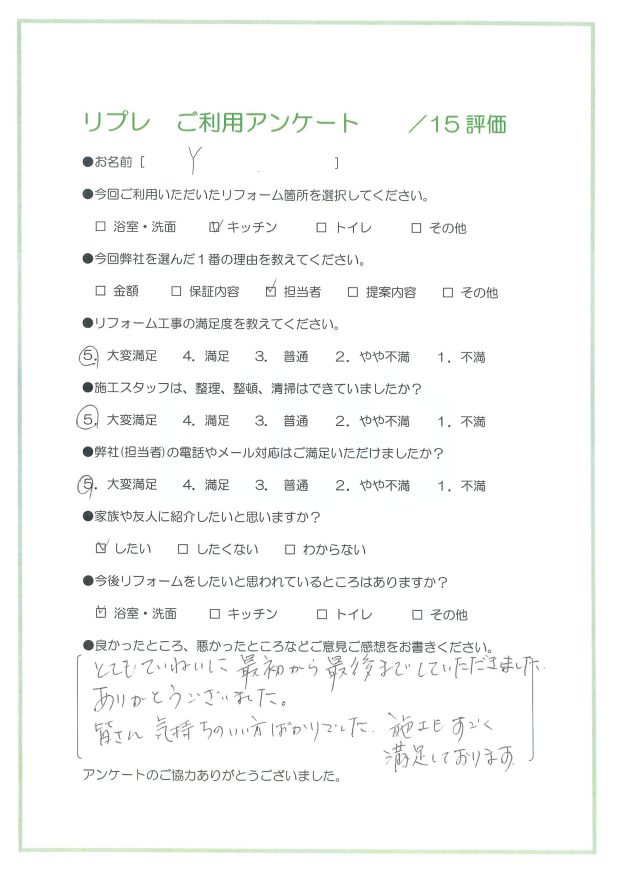 リプレ ご利用アンケート ／15評価
●お名前 [ Y ]
●今回ご利用いただいたリフォーム箇所を選択してください。
□ 浴室・洗面 ☑ キッチン □ トイレ □ その他
●今回弊社を選んだ１番の理由を教えてください。
□ 金額 □ 保証内容 ☑ 担当者 □ 提案内容 □ その他
●リフォーム工事の満足度を教えてください。
5．大変満足 4．満足 3．普通 2．やや不満 1．不満
●施工スタッフは、整理、整頓、清掃はできていましたか？
5．大変満足 4．満足 3．普通 2．やや不満 1．不満
●弊社(担当者)の電話やメール対応はご満足いただけましたか？
5．大変満足 4．満足 3．普通 2．やや不満 1．不満
●家族や友人に紹介したいと思いますか？
☑ したい □ したくない □ わからない
●今後リフォームをしたいと思われているところはありますか？
☑ 浴室・洗面 □ キッチン □ トイレ □ その他
●良かったところ、悪かったところなどご意見ご感想をお書きください。
とてもていねいに 最初から最後までしていただきました.
ありがとうございました。
皆さん 気持ちのいい方ばかりでした. 施工もすごく
満足しております.
アンケートのご協力ありがとうございました。